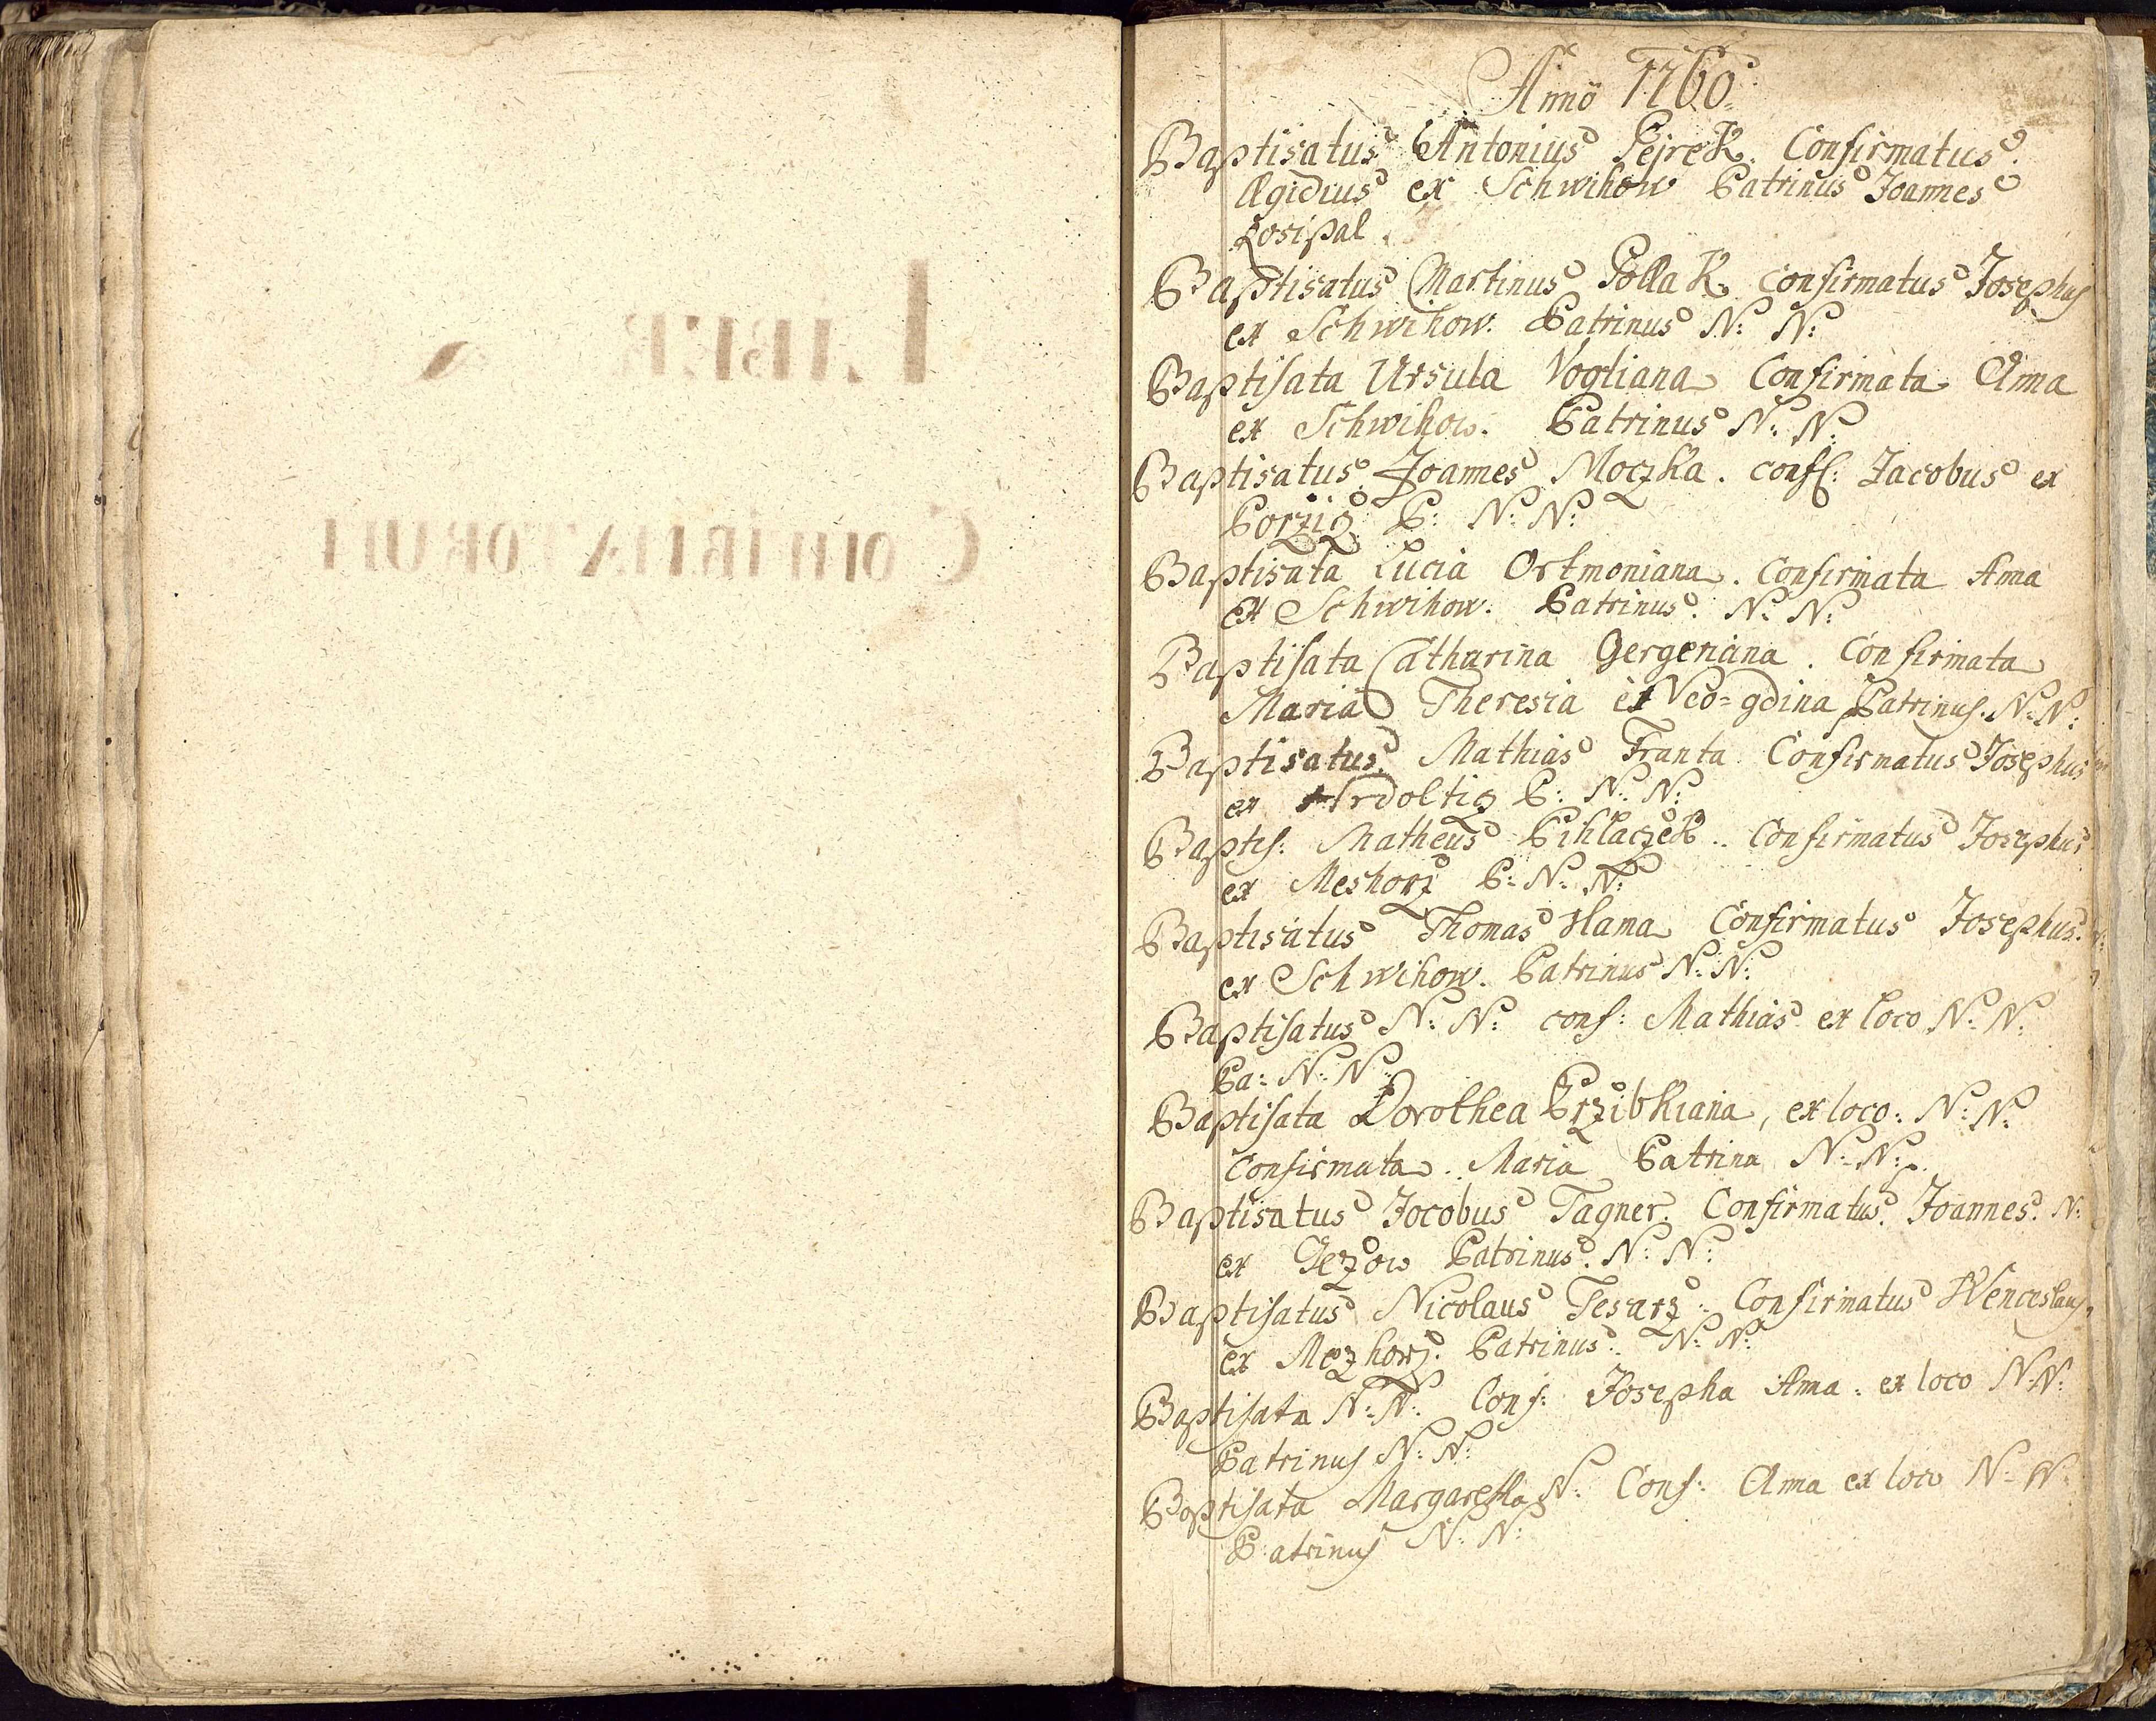 LIBER
CONFIRMATORUM
Anno 1760
Baptisatus Antonius Pejrek. Confirmatus
Ægidius ex Schwihow Patrinus Joannes
Baptisatus Martinus Pollak. confirmatus Josephus
ex Schwihow. Patrinus N: N:
Baptisata Ursula Vogtiana Confirmata Anna
ex Schwihow. Patrinus N: N:
Baptisatus Joannes Moczka. conf: Jacobus ex
Borzig P: N: N:
Baptisata Lucia Ortmoniana. Confirmata Anna
ex Schwihow. Patrinus. N: N:
Baptisata Catharina Gergeniana. Confirmata
Maria Theresia ex Neo=gdina Patrinus. N: N:
Baptisatus Mathias Franta Confirmatus Josephus
ex P: N: N:
Baptis: Matheus Pihlaczek.. Confirmatus Josephus
ex Meshorz P: N: N:
Baptisatus Thomas Hama Confirmatus Josephus.
ex Schwihow. Patrinus N: N:
Baptisatus N: N: conf: Mathias ex loco N: N:
Pa: N: N:
Baptisata Dorothea Przibkiana, ex loco: N: N:
Confirmata. Maria Patrina N: N:
Baptisatus Jocobus Tagner. Confirmatus. Joannes. N:
ex Gezow Patrinus. N: N:
Baptisatus Nicolaus Tesarz. Confirmatus Wenceslaus,
ex Mezhorz. Patrinus. N: N:
Baptisata N: N: Conf: Josepha Anna. ex loco N: N:
Patrinus N: N:
Baptisata Margaretha N: Conf: Anna ex loco N: N:
Patrinus N: N: